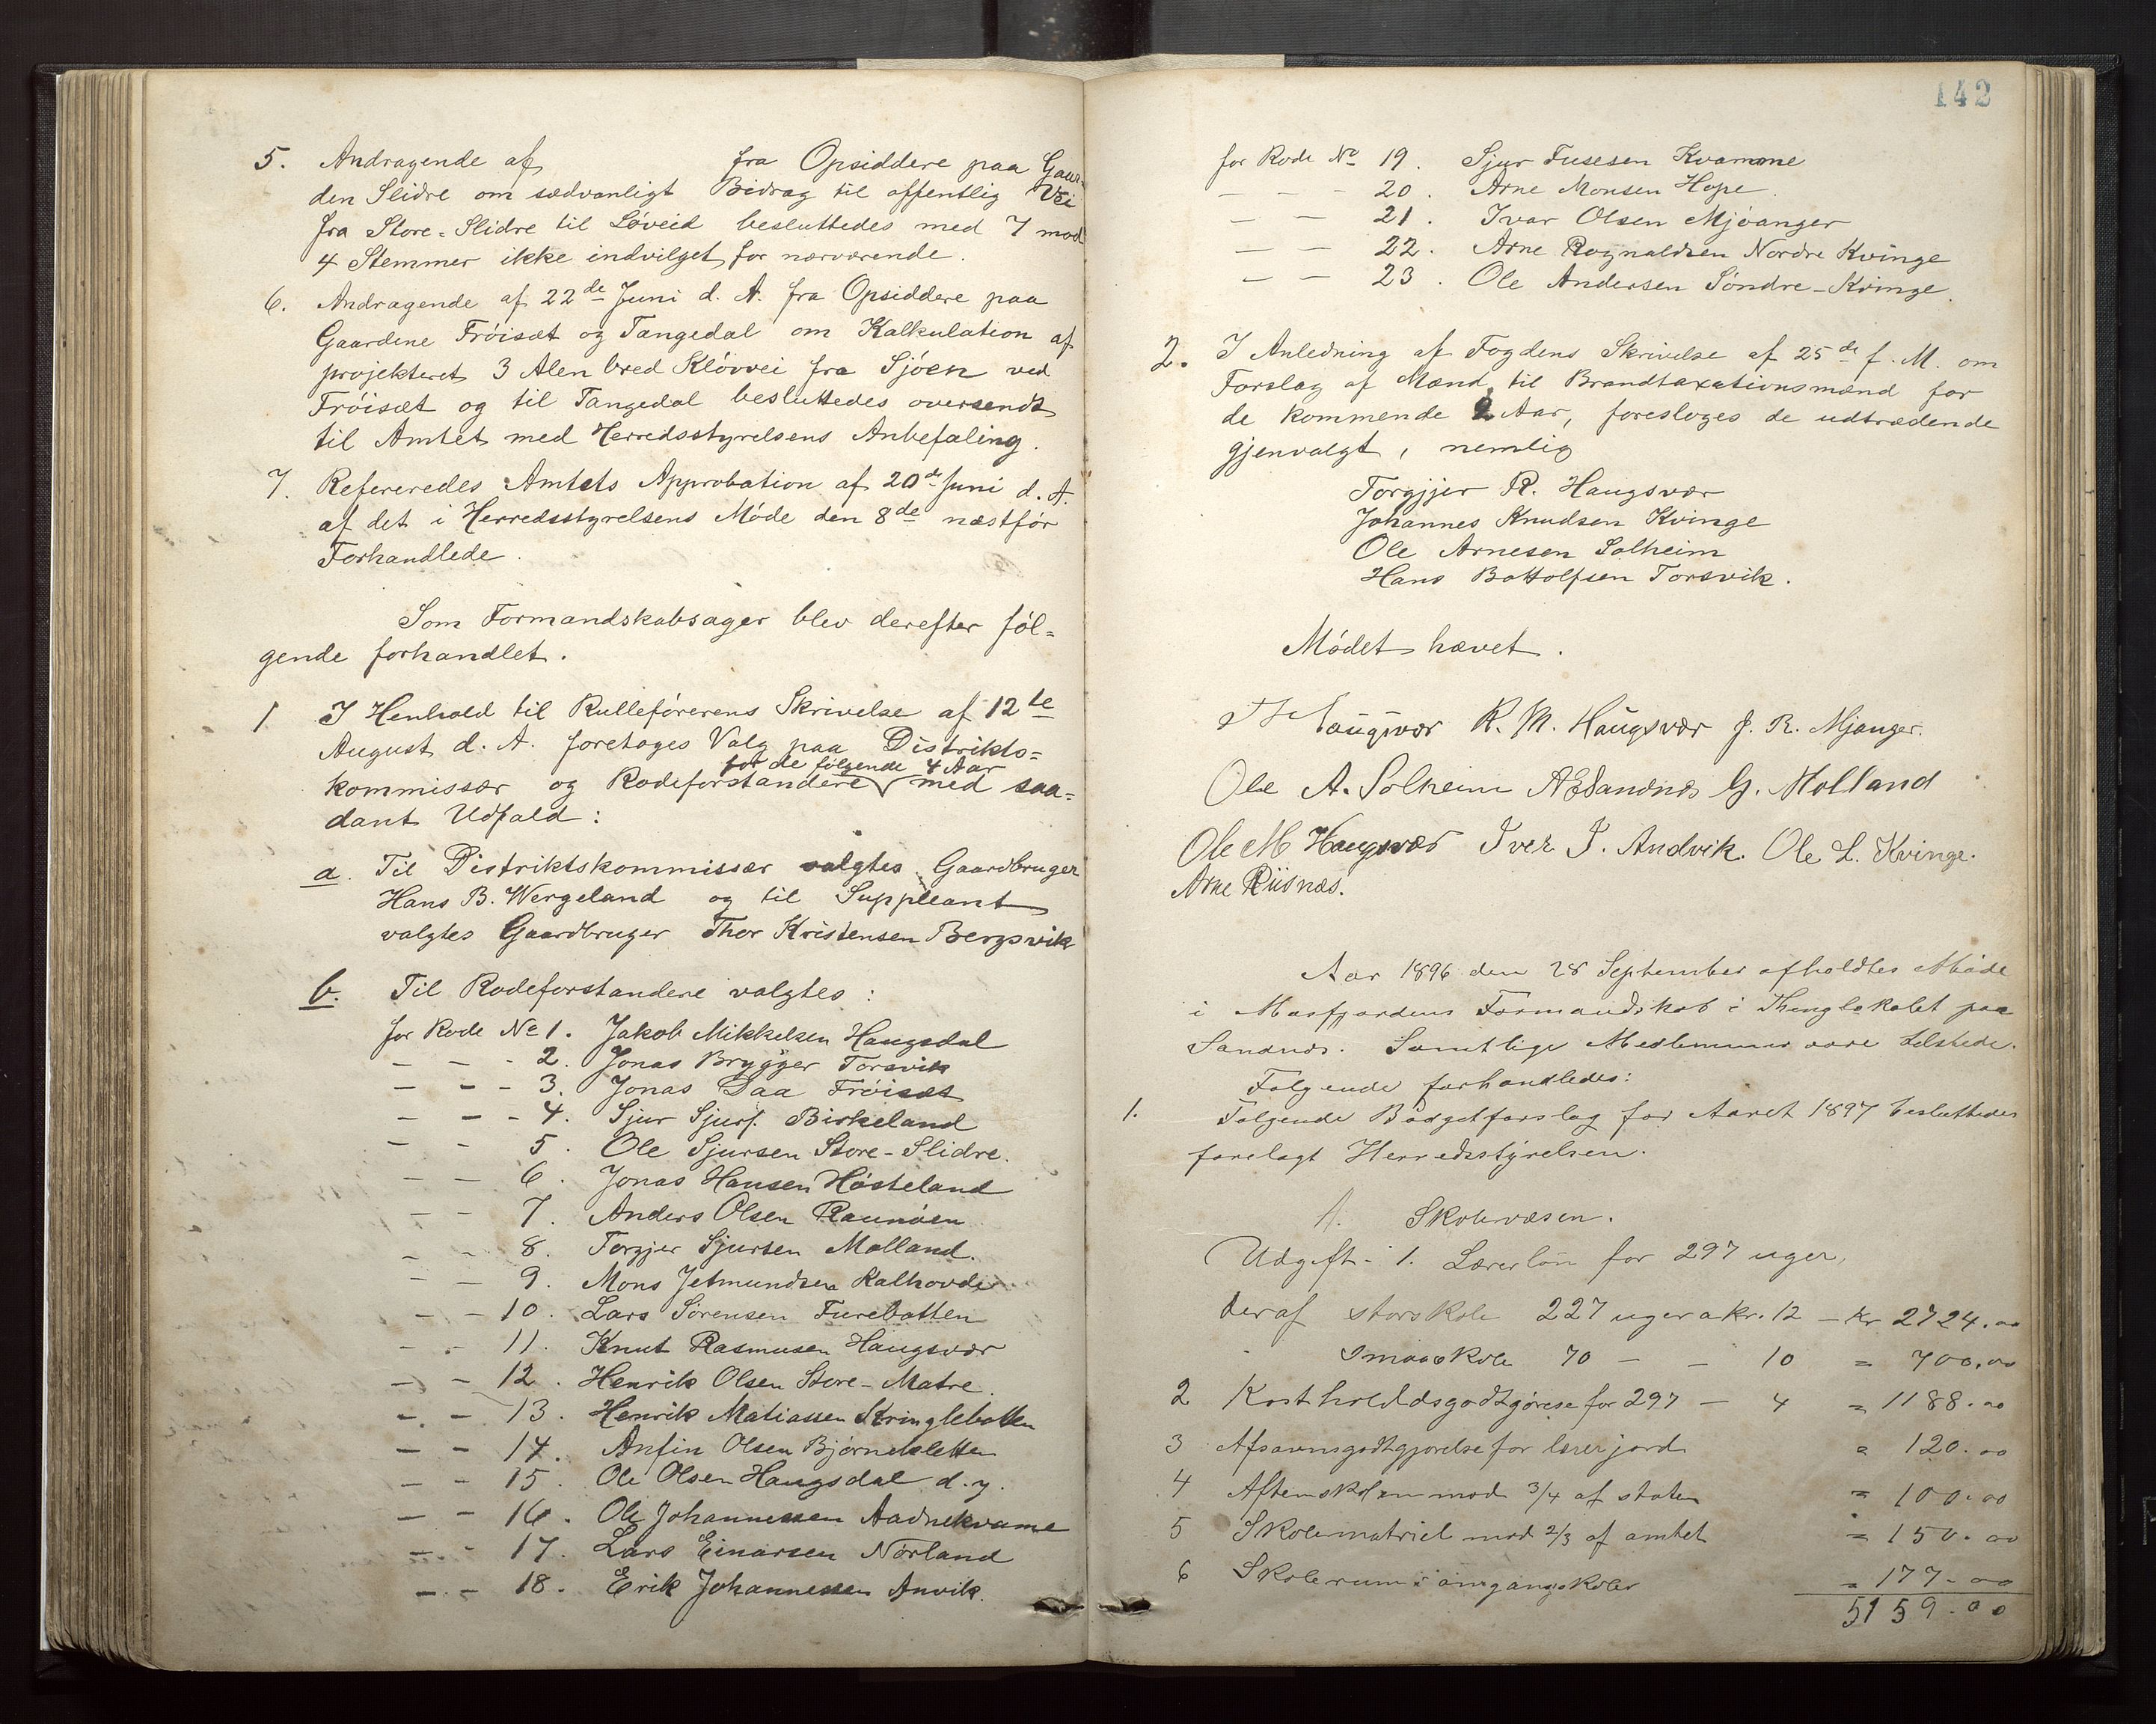 5. Andragende af fra Opsiddere paa Gaar-
den Slidre om sædvanligt Bidrag til offentlig Vei
fra Store-Slidre til Løveid besluttedes med 7 mod
4 Stemmer ikke indvilget for nærværende.
6. Andragende af 22de Juni d. A. fra Opsiddere paa
Gaardene Frøisæt og Tangedal om Kalkulation af
projekteret 3 Alen bred Kløvvei fra Sjøen ved
Frøisæt og til Tangedal besluttedes oversendt
til Amtet med Herredsstyrelsens Anbefaling.
7. Refereredes Amtets Approbation af 20de Juni d. A.
af det i Herredsstyrelsens Møde den 8de næstfør
Forhandlede.
Som Formandskabsager blev derefter føl=
gende forhandlet.
1 I Henhold til Rulleførerens Skrivelse af 12te
August d. A. foretoges Valg paa Distrikts=
for de følgende 4 Aar
kommissær og Rodeforstandere med saa=
dant Udfald:
a. Til Distriktskommissær valgtes Gaardbruger
Hans B. Wergeland og til Suppleant
valgtes Gaardbruger Thor Kristensen Bergsvik
b. Til Rodeforstandere valgtes:
for Rode No 1. Jakob Mikkelsen Haugsdal
— — - 2. Jonas Brygger Torsvik
— — - 3. Jonas Daa Frøisæt
— — - 4. Sjur Sjurs. Birkeland
— — 5. Ole Sjursen Store-Slidre.
— — 6. Jonas Hansen Høsteland
— — 7. Anders Olsen Raunøen
— — 8. Torgjer Sjursen Molland.
— — 9. Mons Jetmundsen Kalhovde
— — 10. Lars Sørensen Furebotten
— — 11. Knut Rasmusen Haugsvær
— — 12. Henrik Olsen Store-Matre.
— — 13. Henrik Matiassen Kringlebotten
— — 14. Anfin Olsen Bjørnesletten
— — 15. Ole Olsen Haugsdal d. y.
— — 16. Ole Johannessen Aadnekvame
— — 17. Lars Einarsen Nørland
— — 18. Erik Johannessen Anvik.
142
for Rode No 19. Sjur Fusesen Kvamme
— — - 20. Arne Monsen Hope.
— — 21. Ivar Olsen Mjøanger
— — 22. Arne Rognaldsen Nordre Kvinge
— — 23. Ole Andersen Søndre-Kvinge.
2. I Anledning af Fogdens Skrivelse af 25de f. M. om
Forslag af Mænd til Brandtaxationsmænd for
de kommende 2 Aar, foresloges de udtrædende
gjenvalgt, nemlig
Torgjjer R. Haugsvær
Johannes Knudsen Kvinge
Ole Arnesen Solheim
Hans Bottolfsen Torsvik.
Mødet hævet.
Haugsvær R. M. Haugsvær J. R. Mjanger.
Ole A. Solheim A E Sandnæs G. Molland
Ole M Haugsvær Iver I. Andvik. Ole L. Kvinge.
Arne Riisnæs.
Aar 1896 den 28 September afholdtes Møde
i Masfjordens Formandskab i Thinglokalet paa
Sandnæs. Samtlige Medlemmer vare tilstede.
Følgende forhandledes:
1. Følgende Budgetforslag for Aaret 1897 besluttedes
forelagt Herredsstyrelsen.
1. Skolevæsen.
Udgift. 1. Lærerløn for 297 uger,
deraf storskole 227 uger a kr. 12 — kr 2724.00
Smaaskole 70 — — 10 = 700.00
2 Kostholddsgodtgørese for 297 — 4 = 1188.00
3 Afsavnsgodtgjørelse for lærerjord = 120.00
4 Aftenskolen mod 3/4 af staten = 100.00
5 Skolematriel mod 2/3 af amtet = 150.00
6 Skolerum i omgangsskoler = 177.00
5159.00